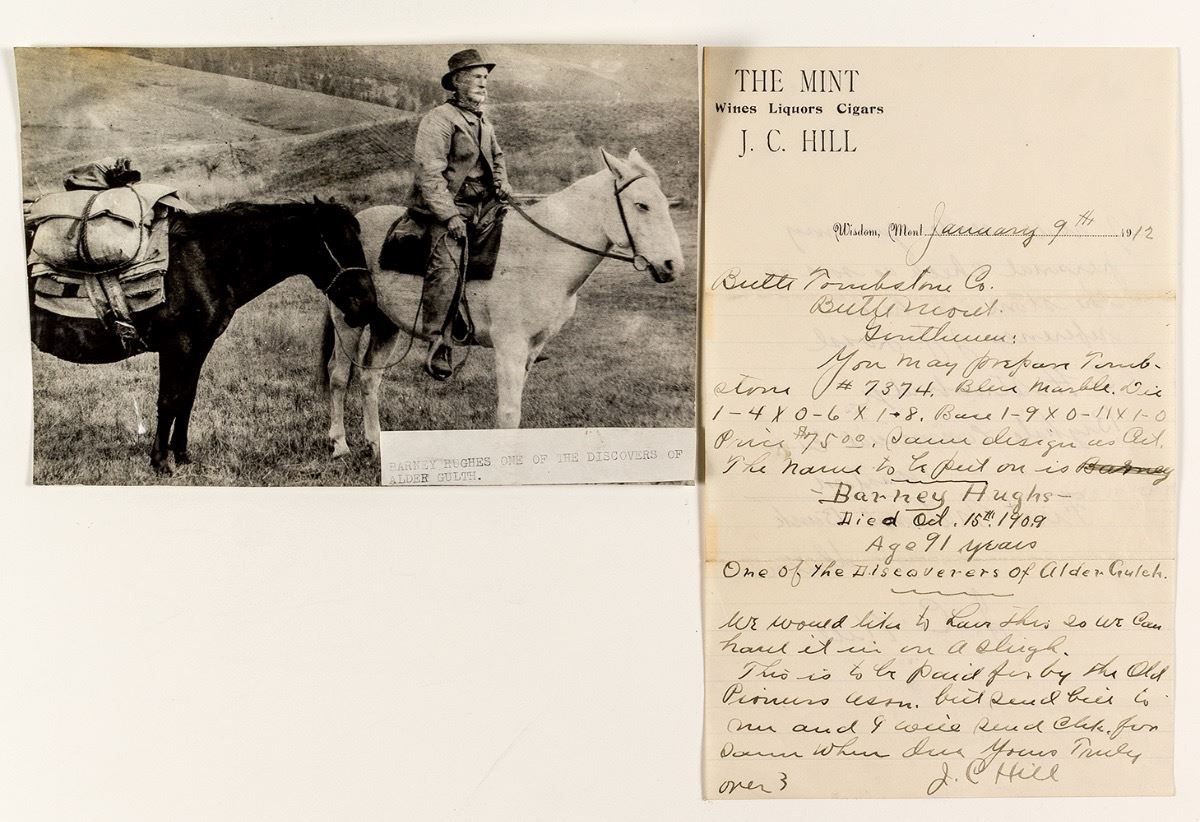 BARNEY HUGHES ONE OF THE DISCOVERS OF
ALDER GULTH.
THE MINT
Wines Liquors Cigars
J. C. HILL
Wisdom, Mont. January 9TH 1912
Butte Tombstone Co.
Butte Mont.
Gentlemen:
You may prepare Tomb-
stone # 7374. Blue Marble. Die
1-4 X 0-6 X 1-8. Base 1-9 X 0-11 X 1-0
Price $75.00. Same design as Cut.
The name to be put on is Barney
Barney Hughs-
Died Oct. 15th. 1909
Age 91 years
One of the Discoverers of Alder Gulch.
We would like to have this so we can
haul it in on a sleigh.
This is to be paid for by the Old
Pioneers assn. but send bill to
me and I will send chk. for
same when due Yours Truly
over J. C Hill